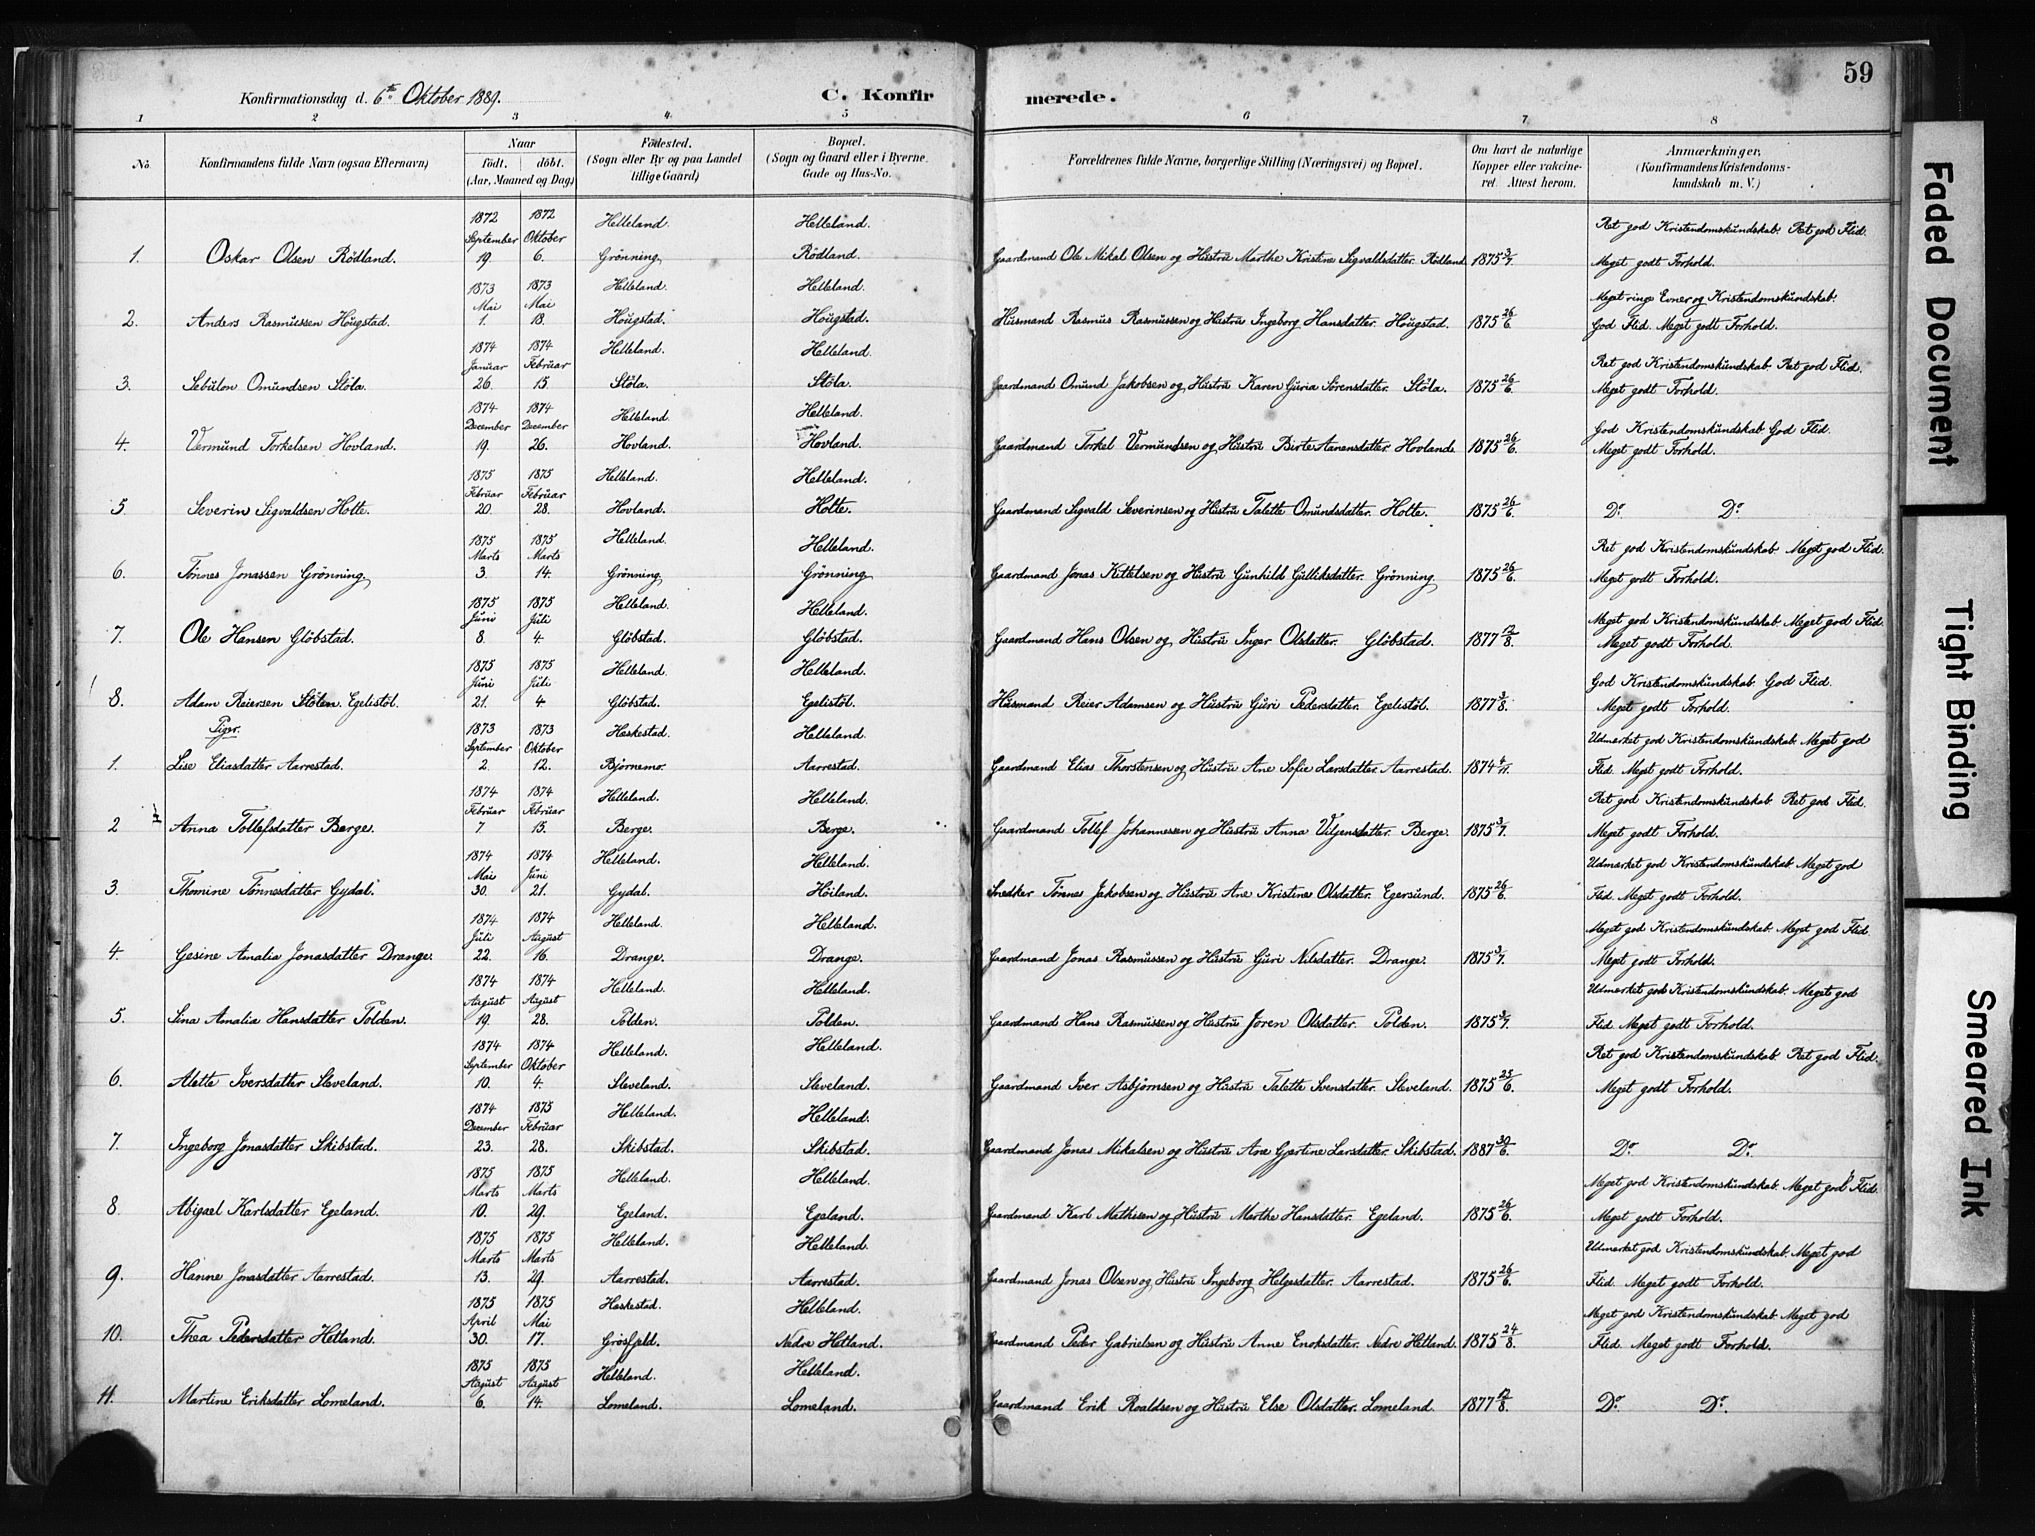 59
Konfirmationsdag d. 6te Oktober 1889. C. Konfir merede.
1 2 3 4 5 6 7 8
No. Konfirmandens fulde Navn (ogsaa Efternavn) Naar födt. döbt. (Aar, Maaned og Dag) Födested. (Sogn eller By og paa Landet tillige Gaard) Bopæl. (Sogn og Gaard eller i Byerne Gade og Hus-No. Forældrenes fulde Navne, borgerlige Stilling (Næringsvei) og Bopæl. Om havt de naturlige Kopper eller vakcineret. Attest herom. Anmærkninger. (Konfirmandens Kristendomskundskab m. V.)
1872 1872 Helleland. Helleland. Ret god Kristendomskundskab. Ret god Flid.
September Oktober
1. Oskar Olsen Rödland. 19 6. Grønning. Rödland. Gaardmand Ole Mikal Olsen og Hustru Marthe Kristine Sigvaldsdatter. Rödland. 1875 3/7. Meget godt Forhold.
1873 1873 Helleland. Helleland. Meget ringe Evner og Kristendomskundskab.
Mai Mai
2. Anders Rasmussen Hougstad. 1. 18. Hougstad. Hougstad. Husmand Rasmus Rasmussen og Hustru Ingeborg Hansdatter. Hougstad. 1875 26/6. God Flid. Meget godt Forhold.
1874 1874 Helleland. Helleland. Ret god Kristendomskundskab. Ret god Flid.
Januar Februar
3. Sebulon Omundsen Stöla. 26. 15. Stöla. Stöla. Gaardmand Omund Jakobsen og Hustru Karen Guria Sörensdatter. Stöla. 1875 26/6. Meget godt Forhold.
1874 1874 Helleland. Helleland. God Kristendomskundskab God Flid.
December December
4. Vermund Torkelsen Hovland. 19. 26. Hovland. Hovland. Gaardmand Torkel Vermundsen og Hustru Birte Aanensdatter. Hovland. 1875 26/6. Meget godt Forhold.
1875 1875 Helleland. Helleland.
Februar Februar
5. Severin Sigvaldsen Holte. 20. 28. Hovland. Holte. Gaardmand Sigvald Severinsen og Hustru Talette Omundsdatter. Holte. 1875 26/6. Do. Do.
1875 1875 Helleland. Helleland. Ret god Kristendomskundskab. Meget god Flid.
Marts Marts
6. Tønnes Jonassen Grönning. 3. 14. Grönning. Grönning. Gaardmand Jonas Kittelsen og Hustru Gunhild Gulliksdatter. Grönning. 1875 26/6. Meget godt Forhold.
1875 1875 Helleland. Helleland. Meget god Kristendomskundskab. Meget god Flid.
Juni Juli
7. Ole Hansen Glöbstad. 8 4. Glöbstad. Glöbstad. Gaardmand Hans Olsen og Hustru Inger Olsdatter. Glöbstad. 1877 12/8. Meget godt Forhold.
1875 1875 Helleland. Helleland. God Kristendomskundskab. God Flid.
Juni Juli
8. Adam Reiersen Egelistöl. 21. 4 Glöbstad. Egelistöl. Husmand Reier Adamsen og Hustru Guri Pedersdatter. Egelistöl. 1877 3/8. Meget godt Forhold.
Piger. 1873 1873 Heskestad. Helleland. Udmærket god Kristendomskundskab. Meget god
September Oktober
1. Lise Eliasdatter Aarrestad. 2. 12. Bjørnemo. Aarrestad. Gaardmand Elias Thorstensen og Hustru Ane Sofie Larsdatter. Aarrestad. 1874 4/11. Flid. Meget godt Forhold.
1874 1874 Helleland. Helleland. Ret god Kristendomskundskab. Ret god Flid.
Februar Februar
2 Anna Tollefsdatter Berge. 7 15. Berge. Berge. Gaardmand Tollef Johannessen og Hustru Anna Viljensdatter. Berge. 1875 3/7. Meget godt Forhold.
1874 1874 Helleland. Helleland. Udmærket god Kristendomskundskab. Meget god
Mai Juni
3. Thomine Tønnesdatter Gydal. 30. 21. Gydal. Höiland. Snedker Tønnes Jakobsen og Hustru Ane Kristine Olsdatter. Egersund. 1875 26/6. Flid. Meget godt Forhold.
1874 1874 Helleland. Helleland. Meget god Kristendomskundskab. Meget god Flid.
Juli August
4. Gesine Amalia Jonasdatter Drange. 22. 16. Drange. Drange. Gaardmand Jonas Rasmussen og Hustru Guri Nilsdatter. Drange. 1875 3/7. Meget godt Forhold.
1874 1874 Helleland. Helleland. Udmærket god Kristendomskundskab. Meget god
August August
5. Sina Amalia Hansdatter Polden. 19. 28. Polden. Polden. Gaardmand Hans Rasmussen og Hustru Joren Olsdatter. Polden. 1875 3/7. Flid. Meget godt Forhold.
1874 1874 Helleland. Helleland. Ret god Kristendomskundskab. Ret god Flid.
September Oktober
6. Alette Iversdatter Sleveland. 10. 4. Sleveland. Sleveland. Gaardmand Iver Asbjørnsen og Hustru Talette Svensdatter. Sleveland. 1875 25/6. Meget godt Forhold.
1874 1875 Helleland. Helleland.
December Februar
7. Ingeborg Jonasdatter Skibstad. 23. 28. Skibstad. Skibstad. Gaardmand Jonas Mikalsen og Hustru Ane Gjertine Larsdatter. Skibstad. 1887 30/6. Do. Do.
1875 1875 Helleland. Helleland. Meget god Kristendomskundskab. Meget god Flid.
Marts Marts
8. Abigael Karlsdatter Egeland. 10. 29. Egeland. Egeland. Gaardmand Karl Mathisen og Hustru Marthe Hansdatter. Egeland. 1875 26/6. Meget godt Forhold.
1875 1875 Helleland. Helleland. Udmærket god Kristendomskundskab. Meget god
Marts Marts
9. Hanne Jonasdatter Aarrestad. 13. 29. Aarrestad. Aarrestad. Gaardmand Jonas Olsen og Hustru Ingeborg Helgesdatter. Aarrestad. 1875 26/6. Flid. Meget godt Forhold.
1875 1875 Heskestad. Helleland. Meget god Kristendomskundskab. Meget god
April Mai
10. Thea Pedersdatter Hetland. 30. 17. Grøsfjeld. Nedre Hetland. Gaardmand Peder Gabrielsen og Hustru Anne Enoksdatter. Nedre Hetland. 1875 24/8. Flid. Meget godt Forhold.
1875 1875 Helleland. Helleland.
August August
11. Martine Eriksdatter Lomeland. 6. 14. Lomeland. Lomeland. Gaardmand Erik Roaldsen og Hustru Else Olsdatter. Lomeland. 1877 12/8. Do. Do.
Faded Document
Tight Binding
Smeared Ink